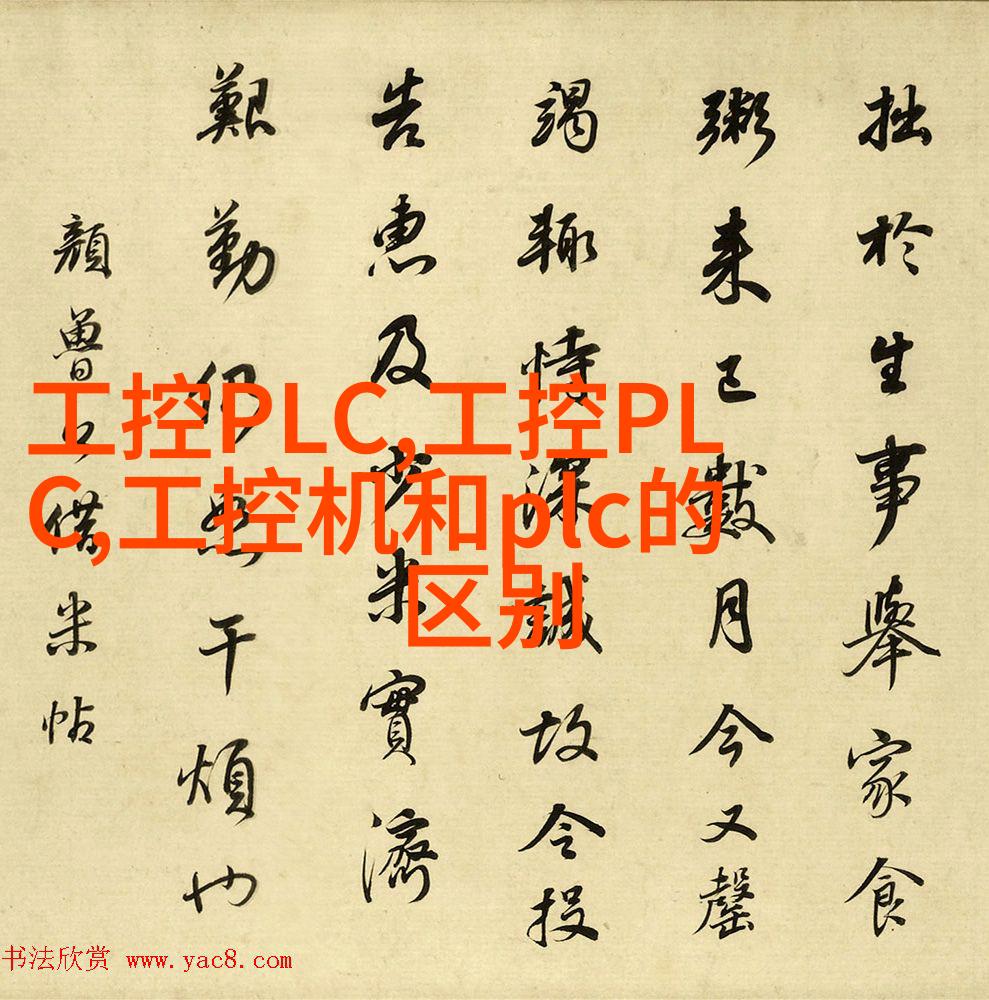 拙於生事舉家食
粥来已數月今又罄
竭輙恃深誠故令投
告惠及少米實濟
艱勤仍恕干煩也
顔魯公借米帖
工控PLC,工控PL
C,工控机和plc的
区别
书法欣赏 www.yac8.com